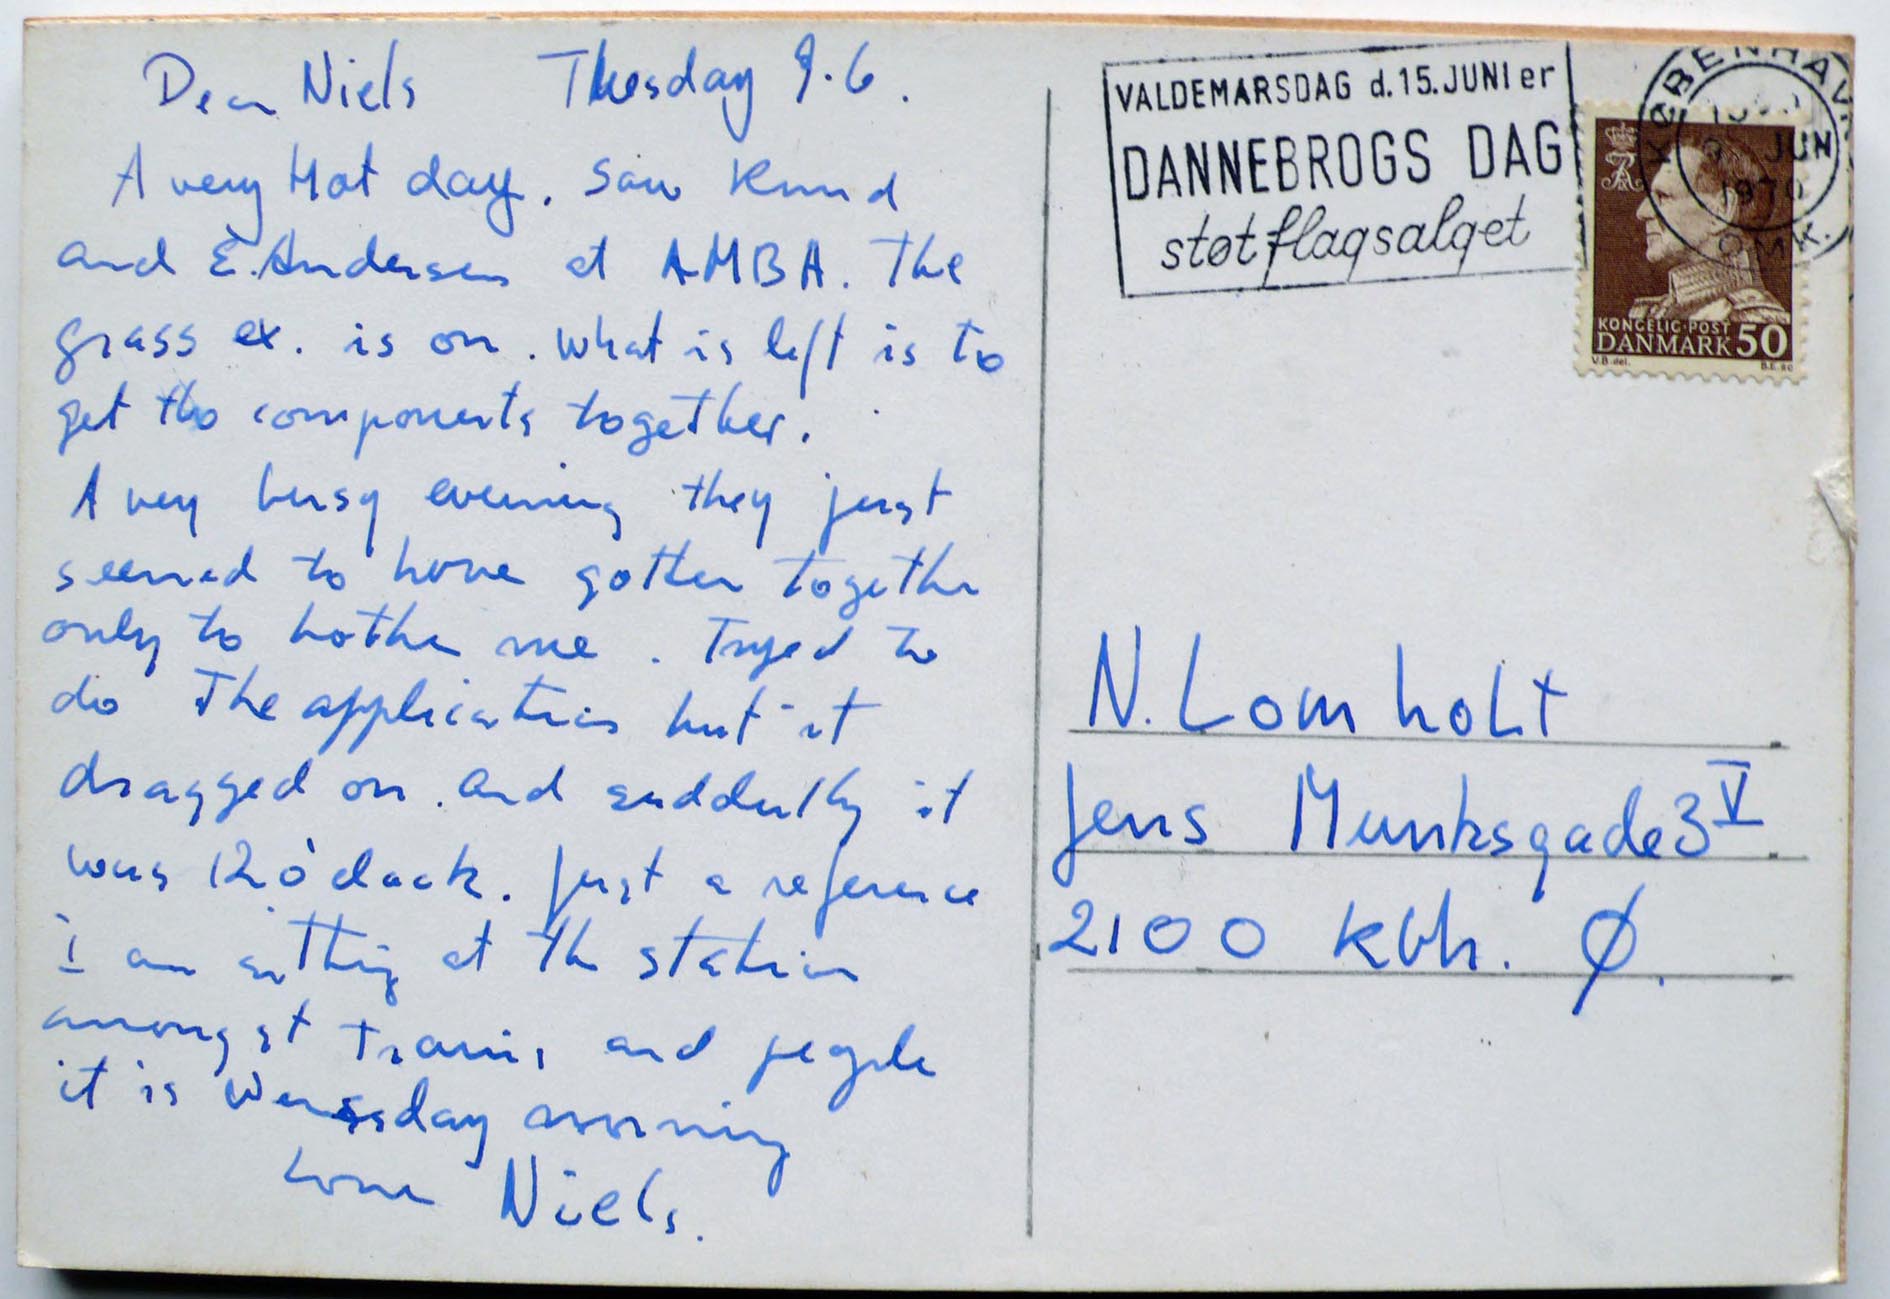 Dear Niels Thesday 9.6.
A very Hot day. Saw Knud
and E. Andersen at AMBA. The
grass ex. is on. what is left is to
get the components together.
A very busy evening they just
seemed to have gotten together
only to bother me. Tryed to
do The application but it
dragged on. and suddenly it
was 12 o'clock. Just a reference
i am sitting at the station
amongst trains and people
it is Wenssday morning
Love Niels.
VALDEMARSDAG d. 15. JUNI er
DANNEBROGS DAG
støt flagsalget
KØBENHAVN
9. JUN
1970
OMK.
KONGELIG POST
DANMARK 50
V.B. del. B.E. sc
N. Lomholt
Jens Munksgade 3 V
2100 Kbh. Ø.